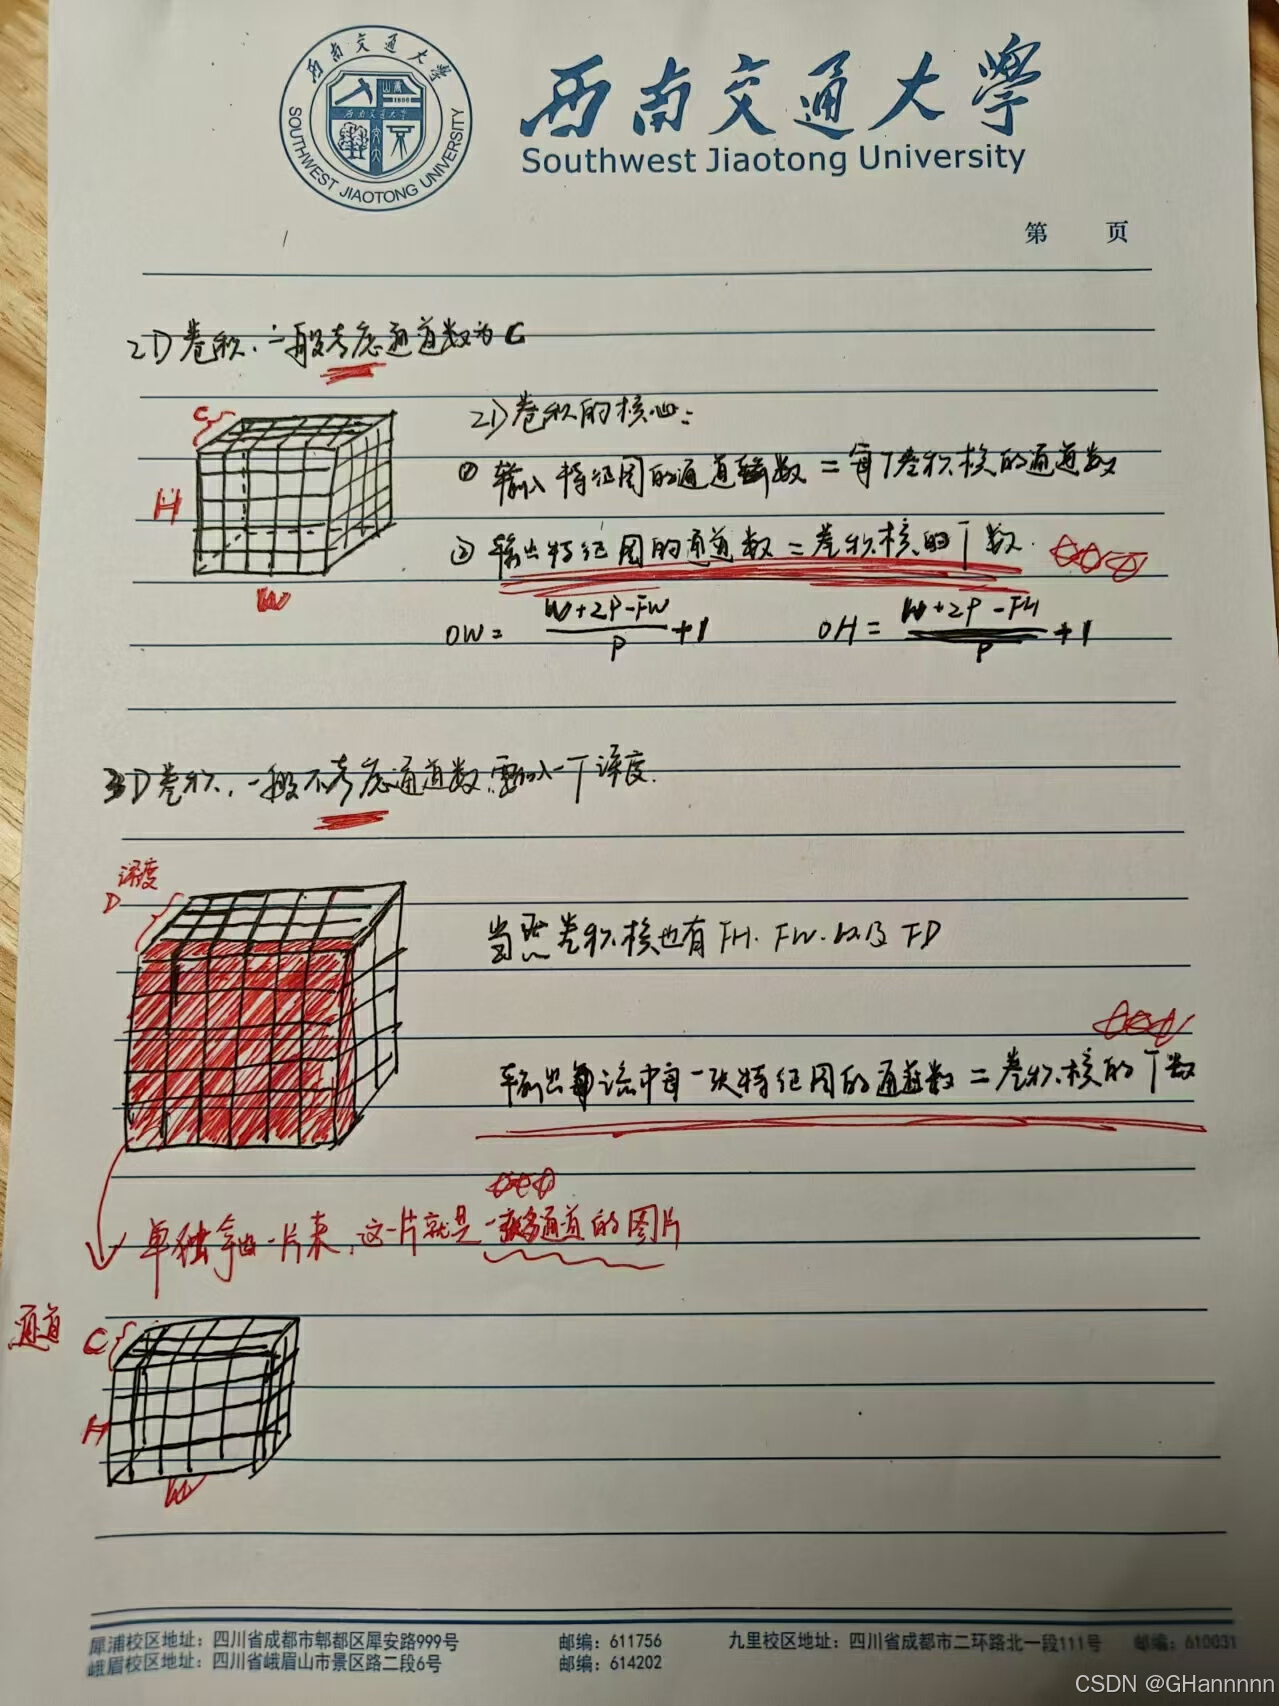 西南交通大学
SOUTHWEST JIAOTONG UNIVERSITY
山
1896
西南交通大学
西南交通大学
Southwest Jiaotong University
第 页
2D卷积.一般考虑通道数为C
C
H
W
2D卷积的核心:
① 输入特征图的通道数=每个卷积核的通道数
② 输出特征图的通道数=卷积核的个数.
OW= W+2P-FW / P +1 OH= W+2P-FH / P +1
3D卷积,一般不考虑通道数,要加入一个深度.
深度
D
当然卷积核也有FH.FW.以及FD
输出每该中每一张特征图的通道数=卷积核的个数
单独拿出一片来,这一片就是一张多通道的图片
通道 C
H
W
犀浦校区地址:四川省成都市郫都区犀安路999号 邮编:611756 九里校区地址:四川省成都市二环路北一段111号 邮编:610031
峨眉校区地址:四川省峨眉山市景区路二段6号 邮编:614202
CSDN @GHannnnn